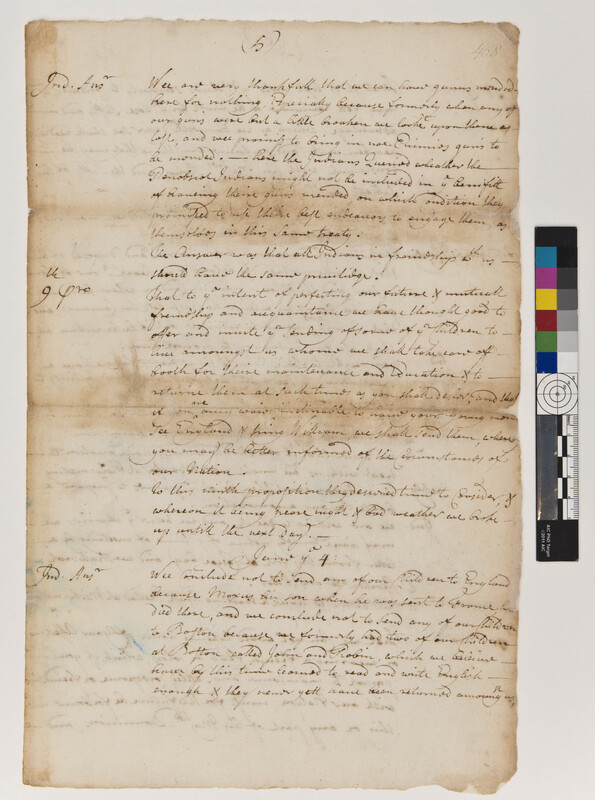 (5)
Ind. Ansr Wee are very thankfull that we can have gunns mended
here for nothing Especially because formerly when any of
our guns were but a little broaken we look't upon them as
lost, and wee promis to bring in noe Enimies guns to
be mended. — here the Indians Queried wheather the
Penobscot Indians might not be included in ye benifitt
of haveing their guns mended on which condition they
promised to use their best endeavors to engage them as
themselves in this same treaty.
The Answer was that all Indians in friendship wth us
should have the same priviledge.
9th Pro That to ye intent of perfecting our future & mutuall
friendship and acquaintance we have thought good to
offer and invite ye sending of some of ye Children to
live amongst us whome we shall take care of
booth for their maintenance and Education & to
returne them at such times as you shall desire, and that
if any were inclinable to have your young men
See England & King William we shall send them, where
you may be better informed of the Circumstances of
our Nation.
To this ninth proposition they desired time to Consider, &
whereon it being neare night & bad weather we broke
up untill the next Day. —
June ye 4
Ind. Ansr Wee conclude not to send any of our Children to England
because Moxus his son when he was sent to France
died there, and we conclude not to send any of our Children
to Boston because we formerly had two of our Children
at Boston called John and Robin, which we beleive
have by this time learned to read and write English
enough & they never yett have been returned amoung us